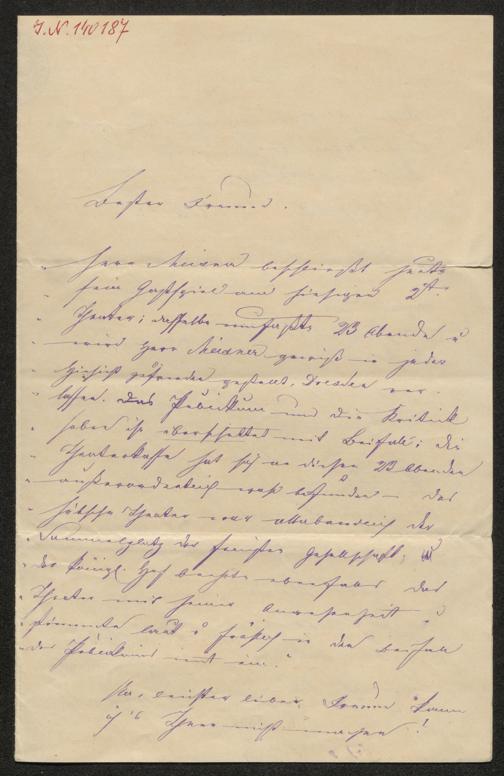 J.N. 140187
Bester Freund.
„Herr Meixner beschließt heute
„sein Gastspiel am hiesigen 2t.
„Theater; dasselbe umfaßte 23 Abende u
„wird Herr Meixner gewiß in jeder
„Hinsicht zufrieden gestellt, Dresden ver-
„lassen. Das Publikum und die Kritik
„haben ihn überschüttet mit Beifall; die
„Theaterkasse hat sich an diesen 23 Abenden
„außerordentlich wohl befunden — das
„hübsche Theater war allabendlich der
„Sammelplatz der feinsten Gesellschaft; u
„der königl. Hof beehrte ebenfalls das
„Theater mit seiner Anwesenheit u
„stimmte laut u in den Beifall
„des Publikums mit ein."
lieber Freund kann
ich's Ihnen nicht machen!